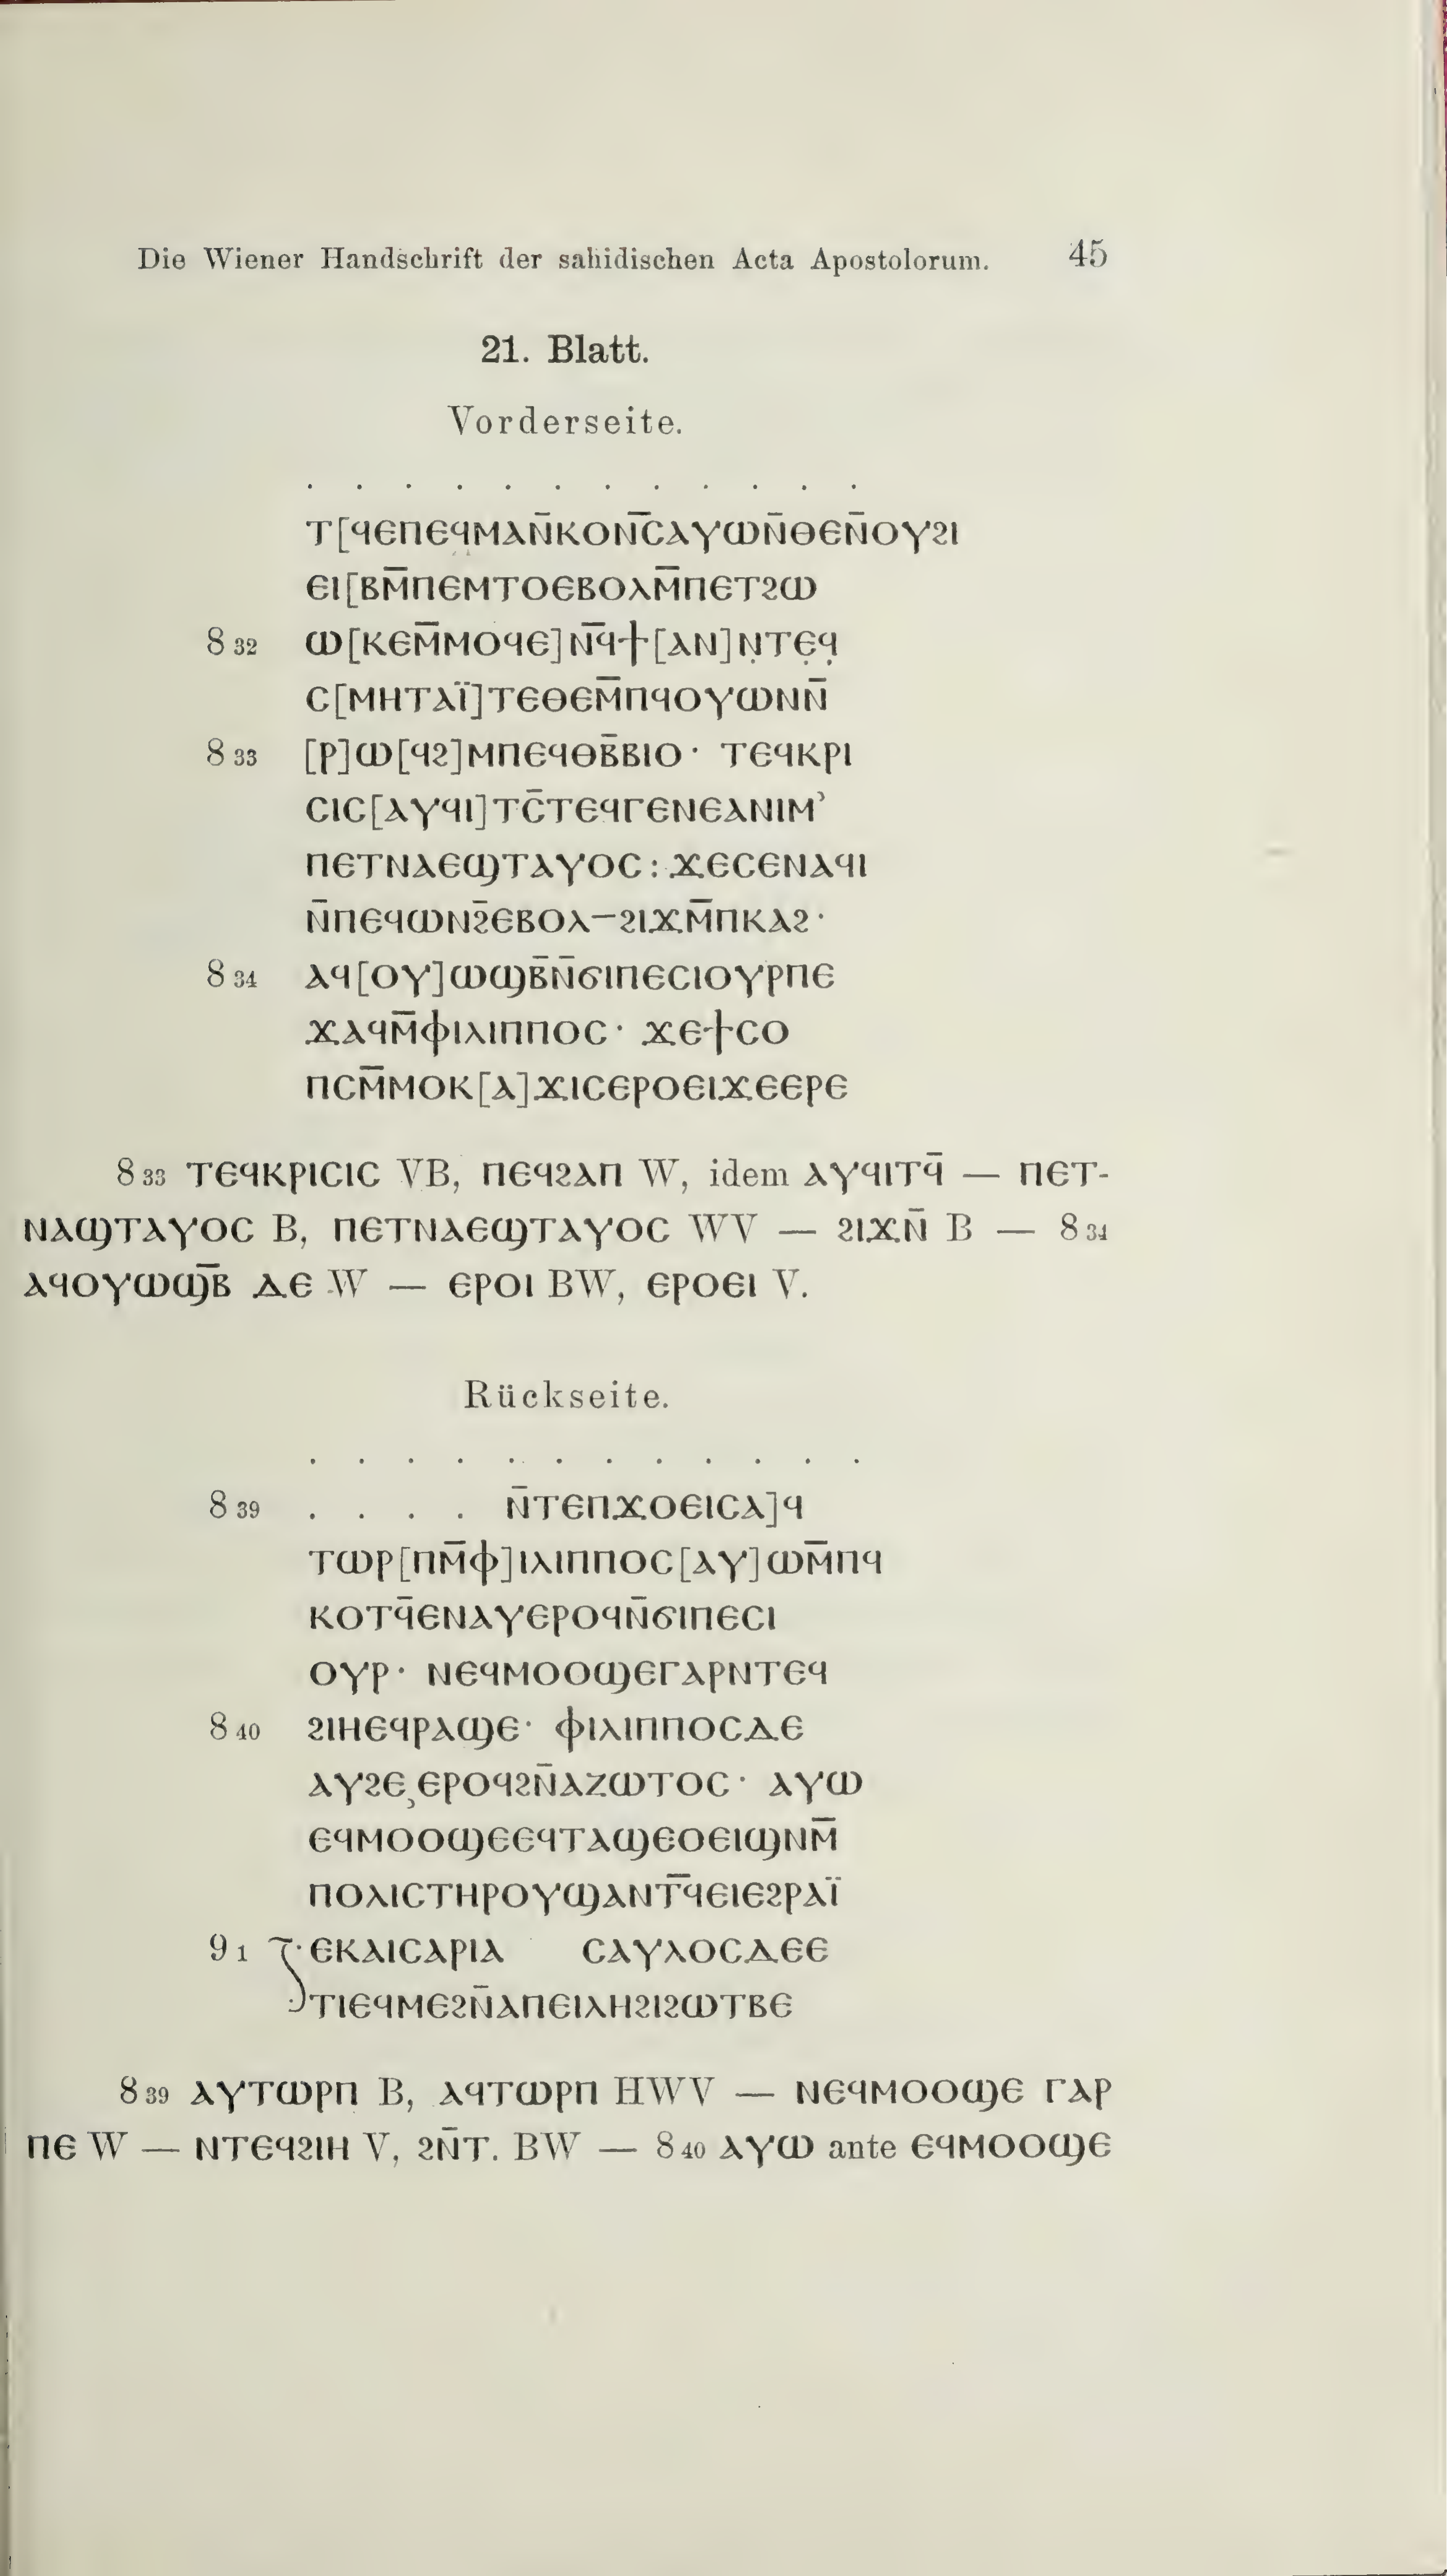 Die Wiener Handschrift der sahidischen Acta Apostolorum. 45
21. Blatt.
Vorderseite.
. . . . . . . . . . . .
ⲧ[ϥⲉⲡⲉϥⲙⲁⲛ̄ⲕⲟⲛⲥ̄ⲁⲩⲱⲛ̄ⲑⲉⲛ̄ⲟⲩϩⲓ
ⲉⲓ[ⲃⲙ̄ⲡⲉⲙⲧⲟⲉⲃⲟⲗⲙ̄ⲡⲉⲧϩⲱ
8 32 ⲱ[ⲕⲉⲙ̄ⲙⲟϥⲉ]ⲛϥ̄ϯ[ⲁⲛ]ⲛ̣ⲧⲉ̣ϥ̣
ⲥ[ⲙⲏⲧⲁⲓ̈]ⲧⲉⲑⲉⲙ̄ⲡϥⲟⲩⲱⲛⲛ̄
8 33 [ⲣ]ⲱ[ϥϩ]ⲙⲡⲉϥⲑⲃ̄ⲃⲓⲟ· ⲧⲉϥⲕⲣⲓ
ⲥⲓⲥ[ⲁⲩϥⲓ]ⲧⲥ̄ⲧⲉϥⲅⲉⲛⲉⲁⲛⲓⲙ’
ⲡⲉⲧⲛⲁⲉϣⲧⲁⲩⲟⲥ:ϫⲉⲥⲉⲛⲁϥⲓ
ⲛ̄ⲡⲉϥⲱⲛϩ̄ⲉⲃⲟⲗ–ϩⲓϫⲙ̄ⲡⲕⲁϩ·
8 34 ⲁϥ[ⲟⲩ]ⲱϣⲃ̄ⲛ̄ϭⲓⲡⲉⲥⲓⲟⲩⲣⲡⲉ
ϫⲁϥⲙ̄ⲫⲓⲗⲓⲡⲡⲟⲥ· ϫⲉϯⲥⲟ
ⲡⲥⲙ̄ⲙⲟⲕ[ⲁ]ϫⲓⲥⲉⲣⲟⲉⲓϫⲉⲉⲣⲉ
8 33 ⲧⲉϥⲕⲣⲓⲥⲓⲥ VB, ⲡⲉϥϩⲁⲡ W, idem ⲁⲩϥⲓⲧϥ̄ — ⲡⲉⲧ-
ⲛⲁϣⲧⲁⲩⲟⲥ B, ⲡⲉⲧⲛⲁⲉϣⲧⲁⲩⲟⲥ WV — ϩⲓϫⲛ̄ B — 8 34
ⲁϥⲟⲩⲱϣⲃ̄ ⲇⲉ W — ⲉⲣⲟⲓ BW, ⲉⲣⲟⲉⲓ V.
Rückseite.
. . . . . . . . . . . .
8 39 . . . . ⲛ̄ⲧⲉⲡϫⲟⲉⲓⲥⲁ]ϥ
ⲧⲱⲣ[ⲡⲙ̄ⲫ]ⲓⲗⲓⲡⲡⲟⲥ[ⲁⲩ]ⲱⲙ̄ⲡϥ
ⲕⲟⲧϥ̄ⲉⲛⲁⲩⲉⲣⲟϥⲛ̄ϭⲓⲡⲉⲥⲓ
ⲟⲩⲣ· ⲛⲉϥⲙⲟⲟϣⲉⲅⲁⲣⲛⲧⲉϥ
8 40 ϩⲓⲏⲉϥⲣⲁϣⲉ· ⲫⲓⲗⲓⲡⲡⲟⲥⲇⲉ
ⲁⲩϩⲉ¸ⲉⲣⲟϥϩⲛ̄ⲁⲍⲱⲧⲟⲥ· ⲁⲩⲱ
ⲉϥⲙⲟⲟϣⲉⲉϥⲧⲁϣⲉⲟⲉⲓϣⲛⲙ̄
ⲡⲟⲗⲓⲥⲧⲏⲣⲟⲩϣⲁⲛⲧϥ̄ⲉⲓⲉϩⲣⲁⲓ̈
9 1 ⲉⲕⲁⲓⲥⲁⲣⲓⲁ ⲥⲁⲩⲗⲟⲥⲇⲉⲉ
ⲧⲓⲉϥⲙⲉϩⲛ̄ⲁⲡⲉⲓⲗⲏϩⲓϩⲱⲧⲃⲉ
8 39 ⲁⲩⲧⲱⲣⲡ B, ⲁϥⲧⲱⲣⲡ HWV — ⲛⲉϥⲙⲟⲟϣⲉ ⲅⲁⲣ
ⲡⲉ W — ⲛⲧⲉϥϩⲓⲏ V, ϩⲛ̄ⲧ. BW — 8 40 ⲁⲩⲱ ante ⲉϥⲙⲟⲟϣⲉ